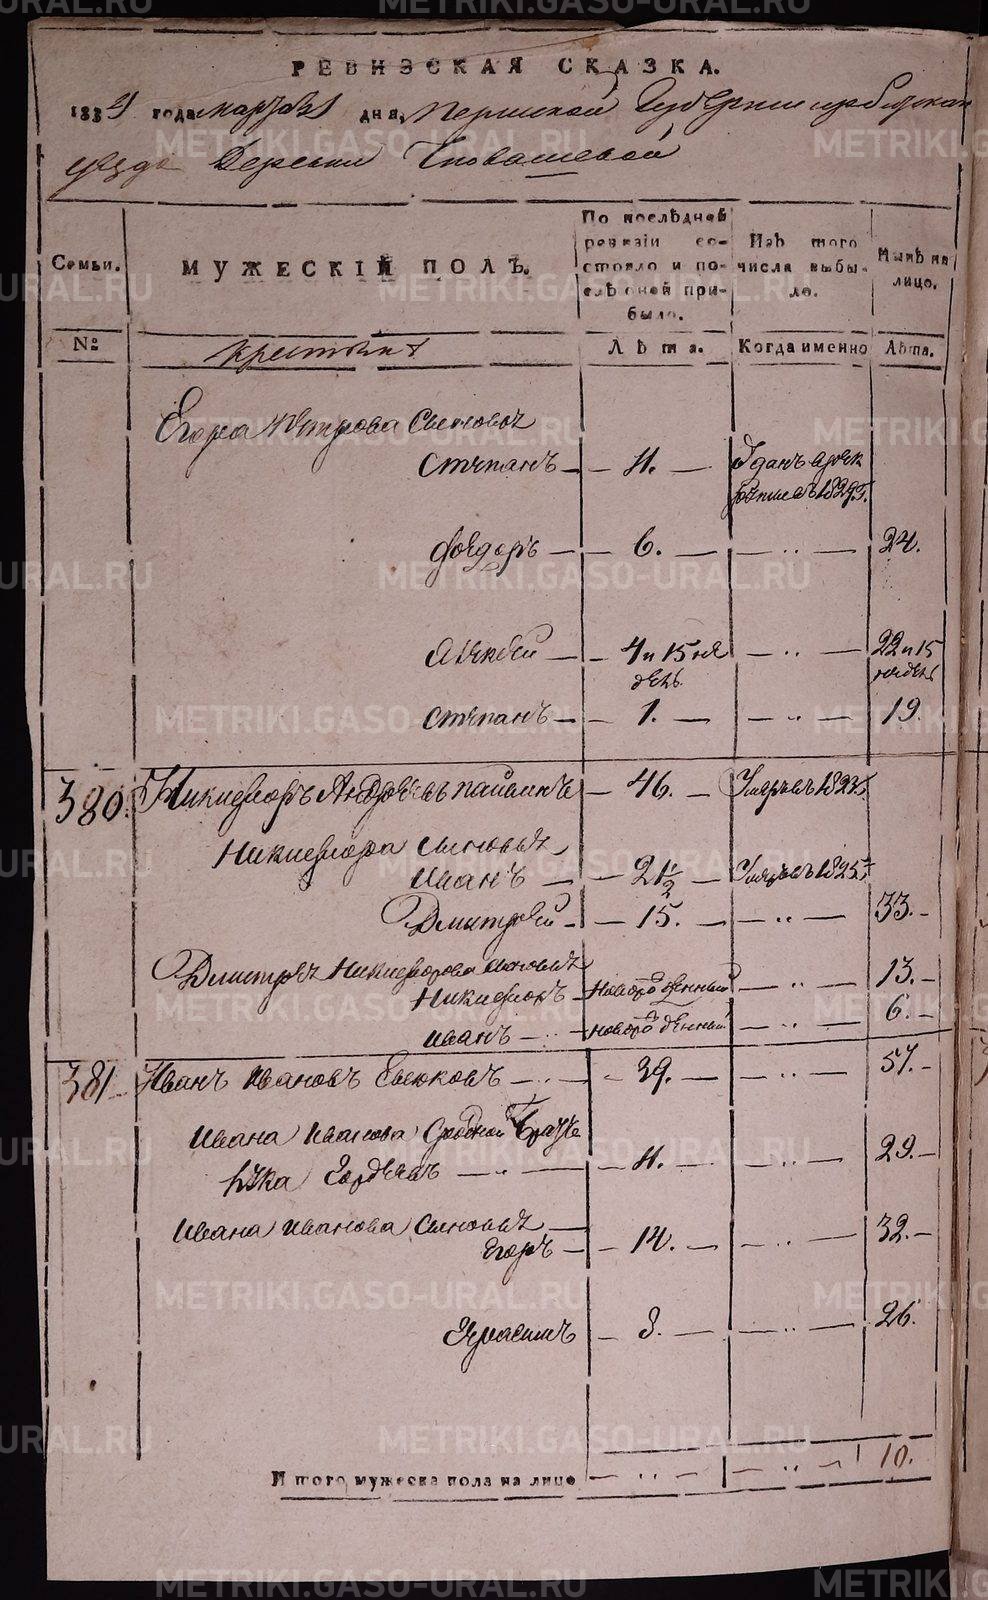 РЕВИЗСКАЯ СКАЗКА.
1834 года марта 21 дня, Пермской Губернии Ирбитскаго
уезда Деревни
Семьи.
МУЖЕСКІЙ ПОЛЪ.
По послѣдней ревизіи состояло и послѣ оной прибыло.
Изъ того числа выбыло.
Нынѣ на лицо.
№
крестьяне
Лѣта.
Когда именно
Лѣта.
Егора Петрова Сыновья
Степанъ — 11. — Отданъ в рек руты въ 1829 г.
Фоедоръ — 6. — „ — 24.
Алексей — 4 и 15 не дель — „ — 22 и 15 недель
Степанъ — 1. — „ — 19.
380. Никифоръ Андреевъ — 46. — Умеръ въ 1823 г.
Никифора сыновья
Иванъ — 21 1/2 — Умеръ въ 1825 г.
Дмитрей — 15. — „ — 33.
Дмитрея Никифорова сыновья
Никифоръ — новорожденный — „ — 13.
Иванъ — новорожденный — „ — 6.
381 Иванъ Ивановъ — 39. — „ — 57.
Ивана Иванова Сродной Брат
Гордеевъ — 11. — „ — 29.
Ивана Иванова Сыновья
Егоръ — 14. — „ — 32.
Герасимъ — 8. — „ — 26.
Итого мужеска пола на лице — „ — — „ — 10.
METRIKI.GASO-URAL.RU